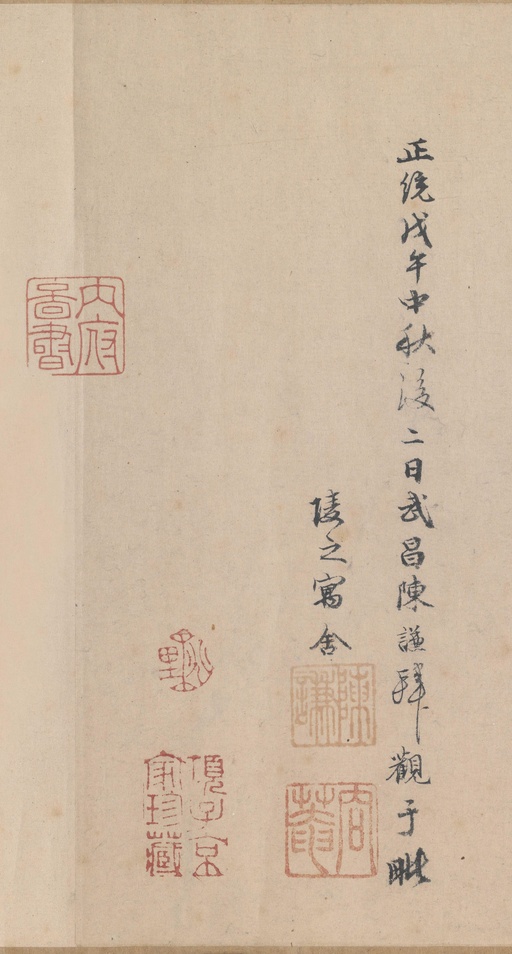 正統戊午中秋後二日武昌陳謙拜觀于毗
陵之寓舍
陳謙
項子京家珍藏
內府啚書